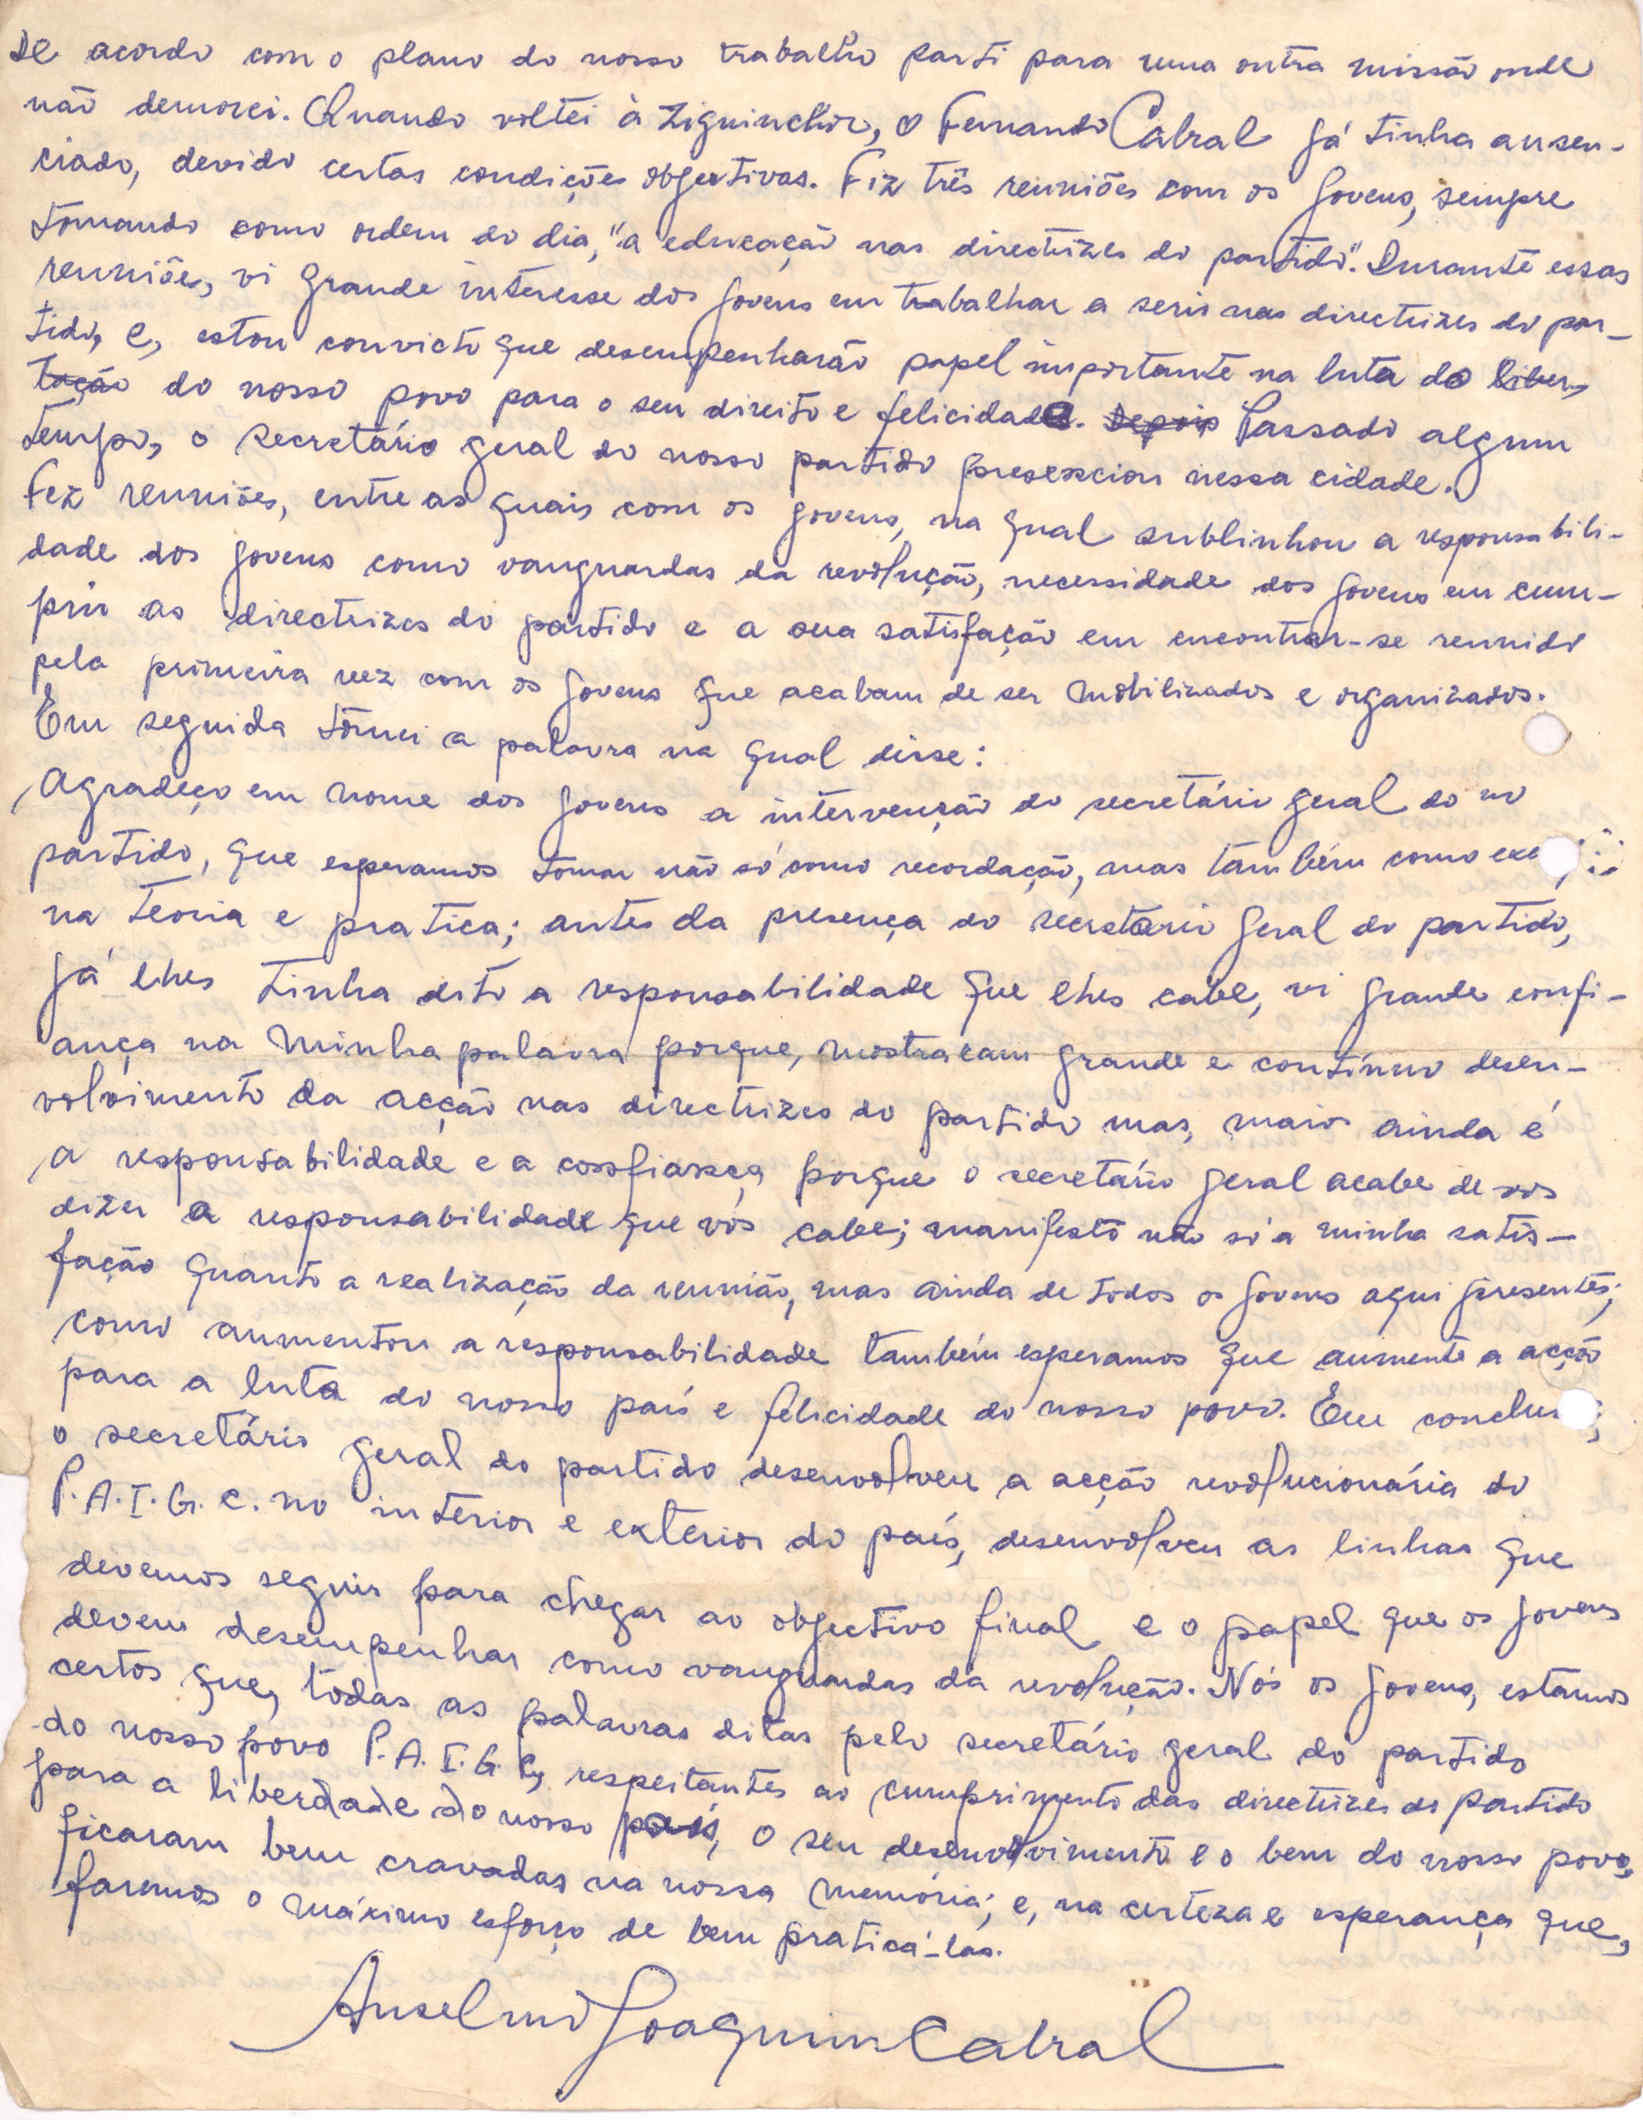 De acordo com o plano do nosso trabalho parti para uma outra missão onde
não demorei. Quando voltei à Ziguinchor, o Fernando Cabral já tinha ausen-
ciado, devido certas condições objectivas. Fiz três reuniões com os jovens, sempre
tomando como ordem do dia, "a educação nas directrizes do partido". Durante essas
reuniões, vi grande interesse dos jovens em trabalhar a serio nas directrizes do par-
tido, e, estou convicto que desempenharão papel importante na luta do
do nosso povo para o seu direito e felicidade. Depois Passado algum
tempo, o secretário geral do nosso partido presenciou nessa cidade.
Fez reuniões, entre as quais com os jovens, na qual sublinhou a responsabili-
dade dos jovens como vanguardas da revolução, necessidade dos jovens em cum-
prir as directrizes do partido e a sua satisfação em encontrar-se reunido
pela primeira vez com os jovens que acabam de ser mobilizados e organizados.
Em seguida tomei a palavra na qual disse:
Agradeço em nome dos jovens a intervenção do secretário geral do no
partido, que esperamos tomar não só como recordação, mas também como exe
na teoria e pratica; antes da presença do secretario geral do partido,
já lhes tinha dito a responsabilidade que lhes cabe, vi grande confi-
ança na minha palavra porque, mostraram grande e contínuo desen-
volvimento da acção nas directrizes do partido mas, mais ainda é
a responsabilidade e a confiança porque o secretário geral acabe de vos
dizer a responsabilidade que vós cabe; manifesto não só a minha satis-
fação quanto a realização da reunião, mas ainda de todos os jovens aqui presentes;
como aumentou a responsabilidade também esperamos que aumente a acção
para a luta do nosso país e felicidade do nosso povo. Em conclus
o secretário geral do partido desenvolveu a acção revolucionária do
P.A.I.G.C. no interior e exterior do país, desenvolveu as linhas que
devemos seguir para chegar ao objectivo final e o papel que os jovens
devem desempenhar como vanguardas da revolução. Nós os jovens, estamos
certos que, todas as palavras ditas pelo secretário geral do partido
do nosso povo P.A.I.G.C, respeitantes ao cumprimento das directrizes do partido
para a liberdade do nosso país, o seu desenvolvimento e o bem do nosso povo,
ficaram bem cravadas na nossa memória; e, na certeza e esperança que,
faremos o máximo esforço de bem praticá-las.
Anselmo Joaquim Cabral